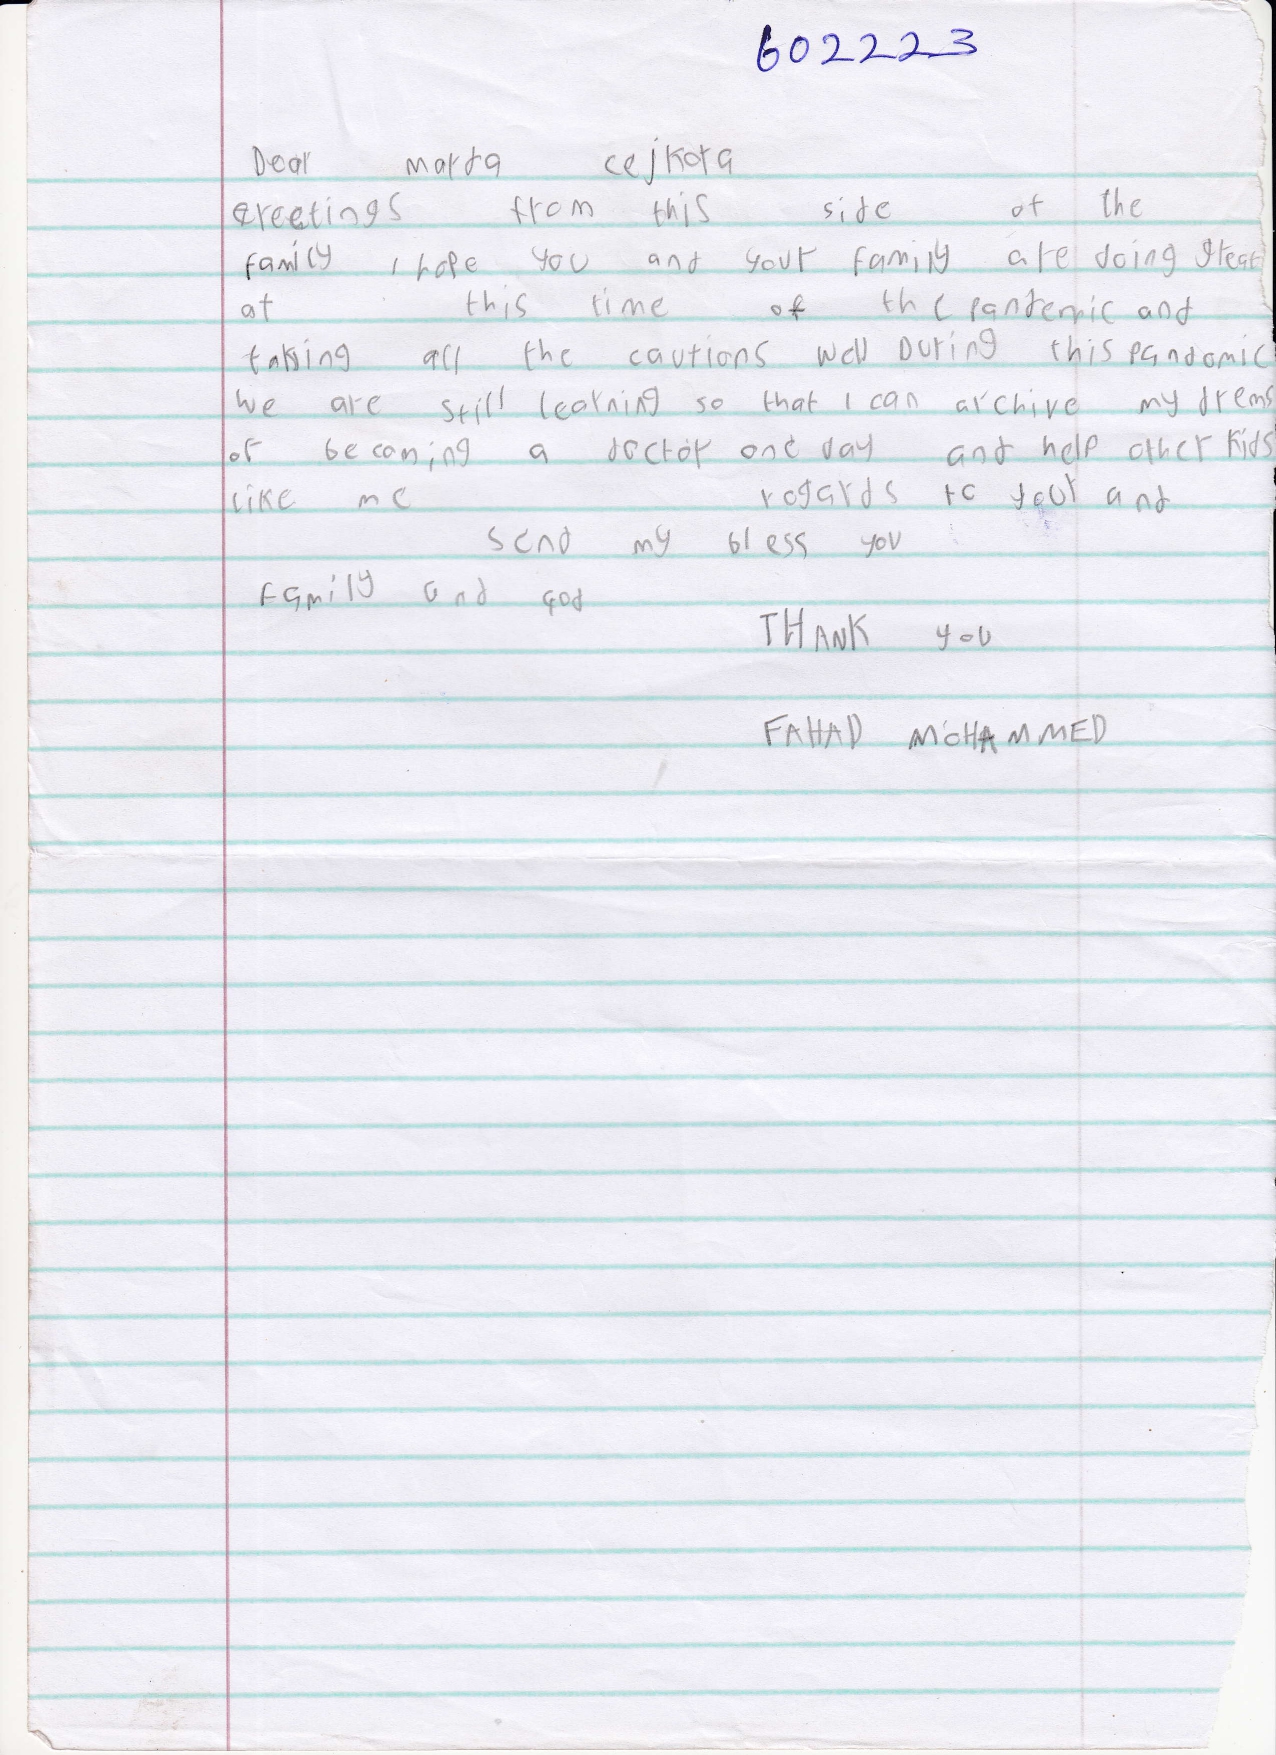 602223
Dear marta cejkova
Greetings from this side of the
family I hope you and your family are doing great
at this time of the pandemic and
taking all the cautions well During this pandemic
we are still learning so that I can archive my drems
of becoming a doctor one day and help other kids
like me regards to your and
send my bless you
family and god
THANK you
FAHAD MOHAMMED